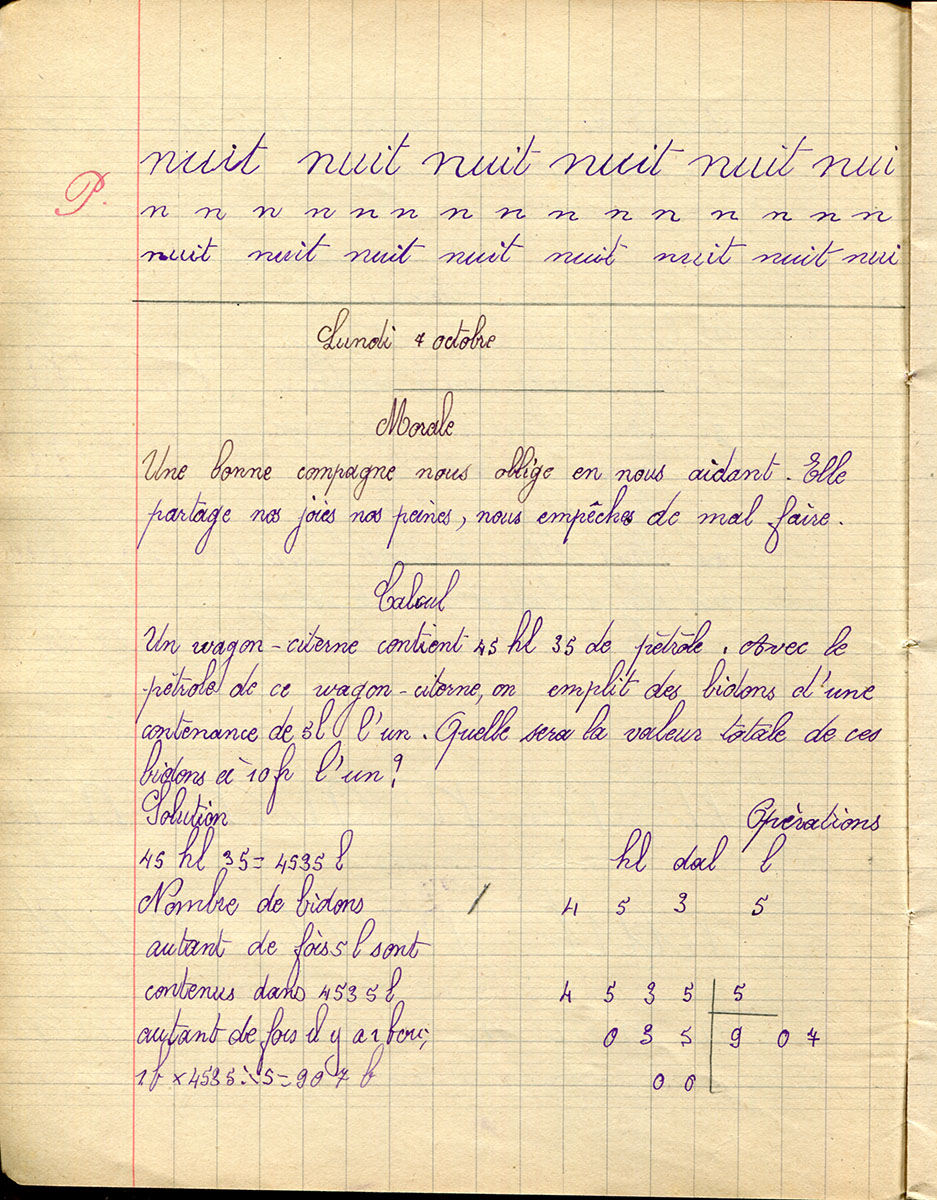 nuit nuit nuit nuit nuit nui
P.
n n n n n n n n n n n n n n n
nuit nuit nuit nuit nuit nuit nuit nui
Lundi 7 octobre
Morale
Une bonne compagne nous oblige en nous aidant. Elle
partage nos joies nos peines, nous empêche de mal faire.
Calcul
Un wagon-citerne contient 45 hl 35 de pétrole. Avec le
pétrole de ce wagon-citerne, on emplit des bidons d'une
contenance de 5l l'un. Quelle sera la valeur totale de ces
bidons à 10f l'un?
Solution Opérations
45 hl 35 = 4535 l hl dal l
Nombre de bidons / 4 5 3 5
autant de fois 5 l sont
contenus dans 4535 l 4 5 3 5 5
autant de fois il y a 1 0 3 5 9 0 7
1b × 4535 : 5 = 907 b 0 0